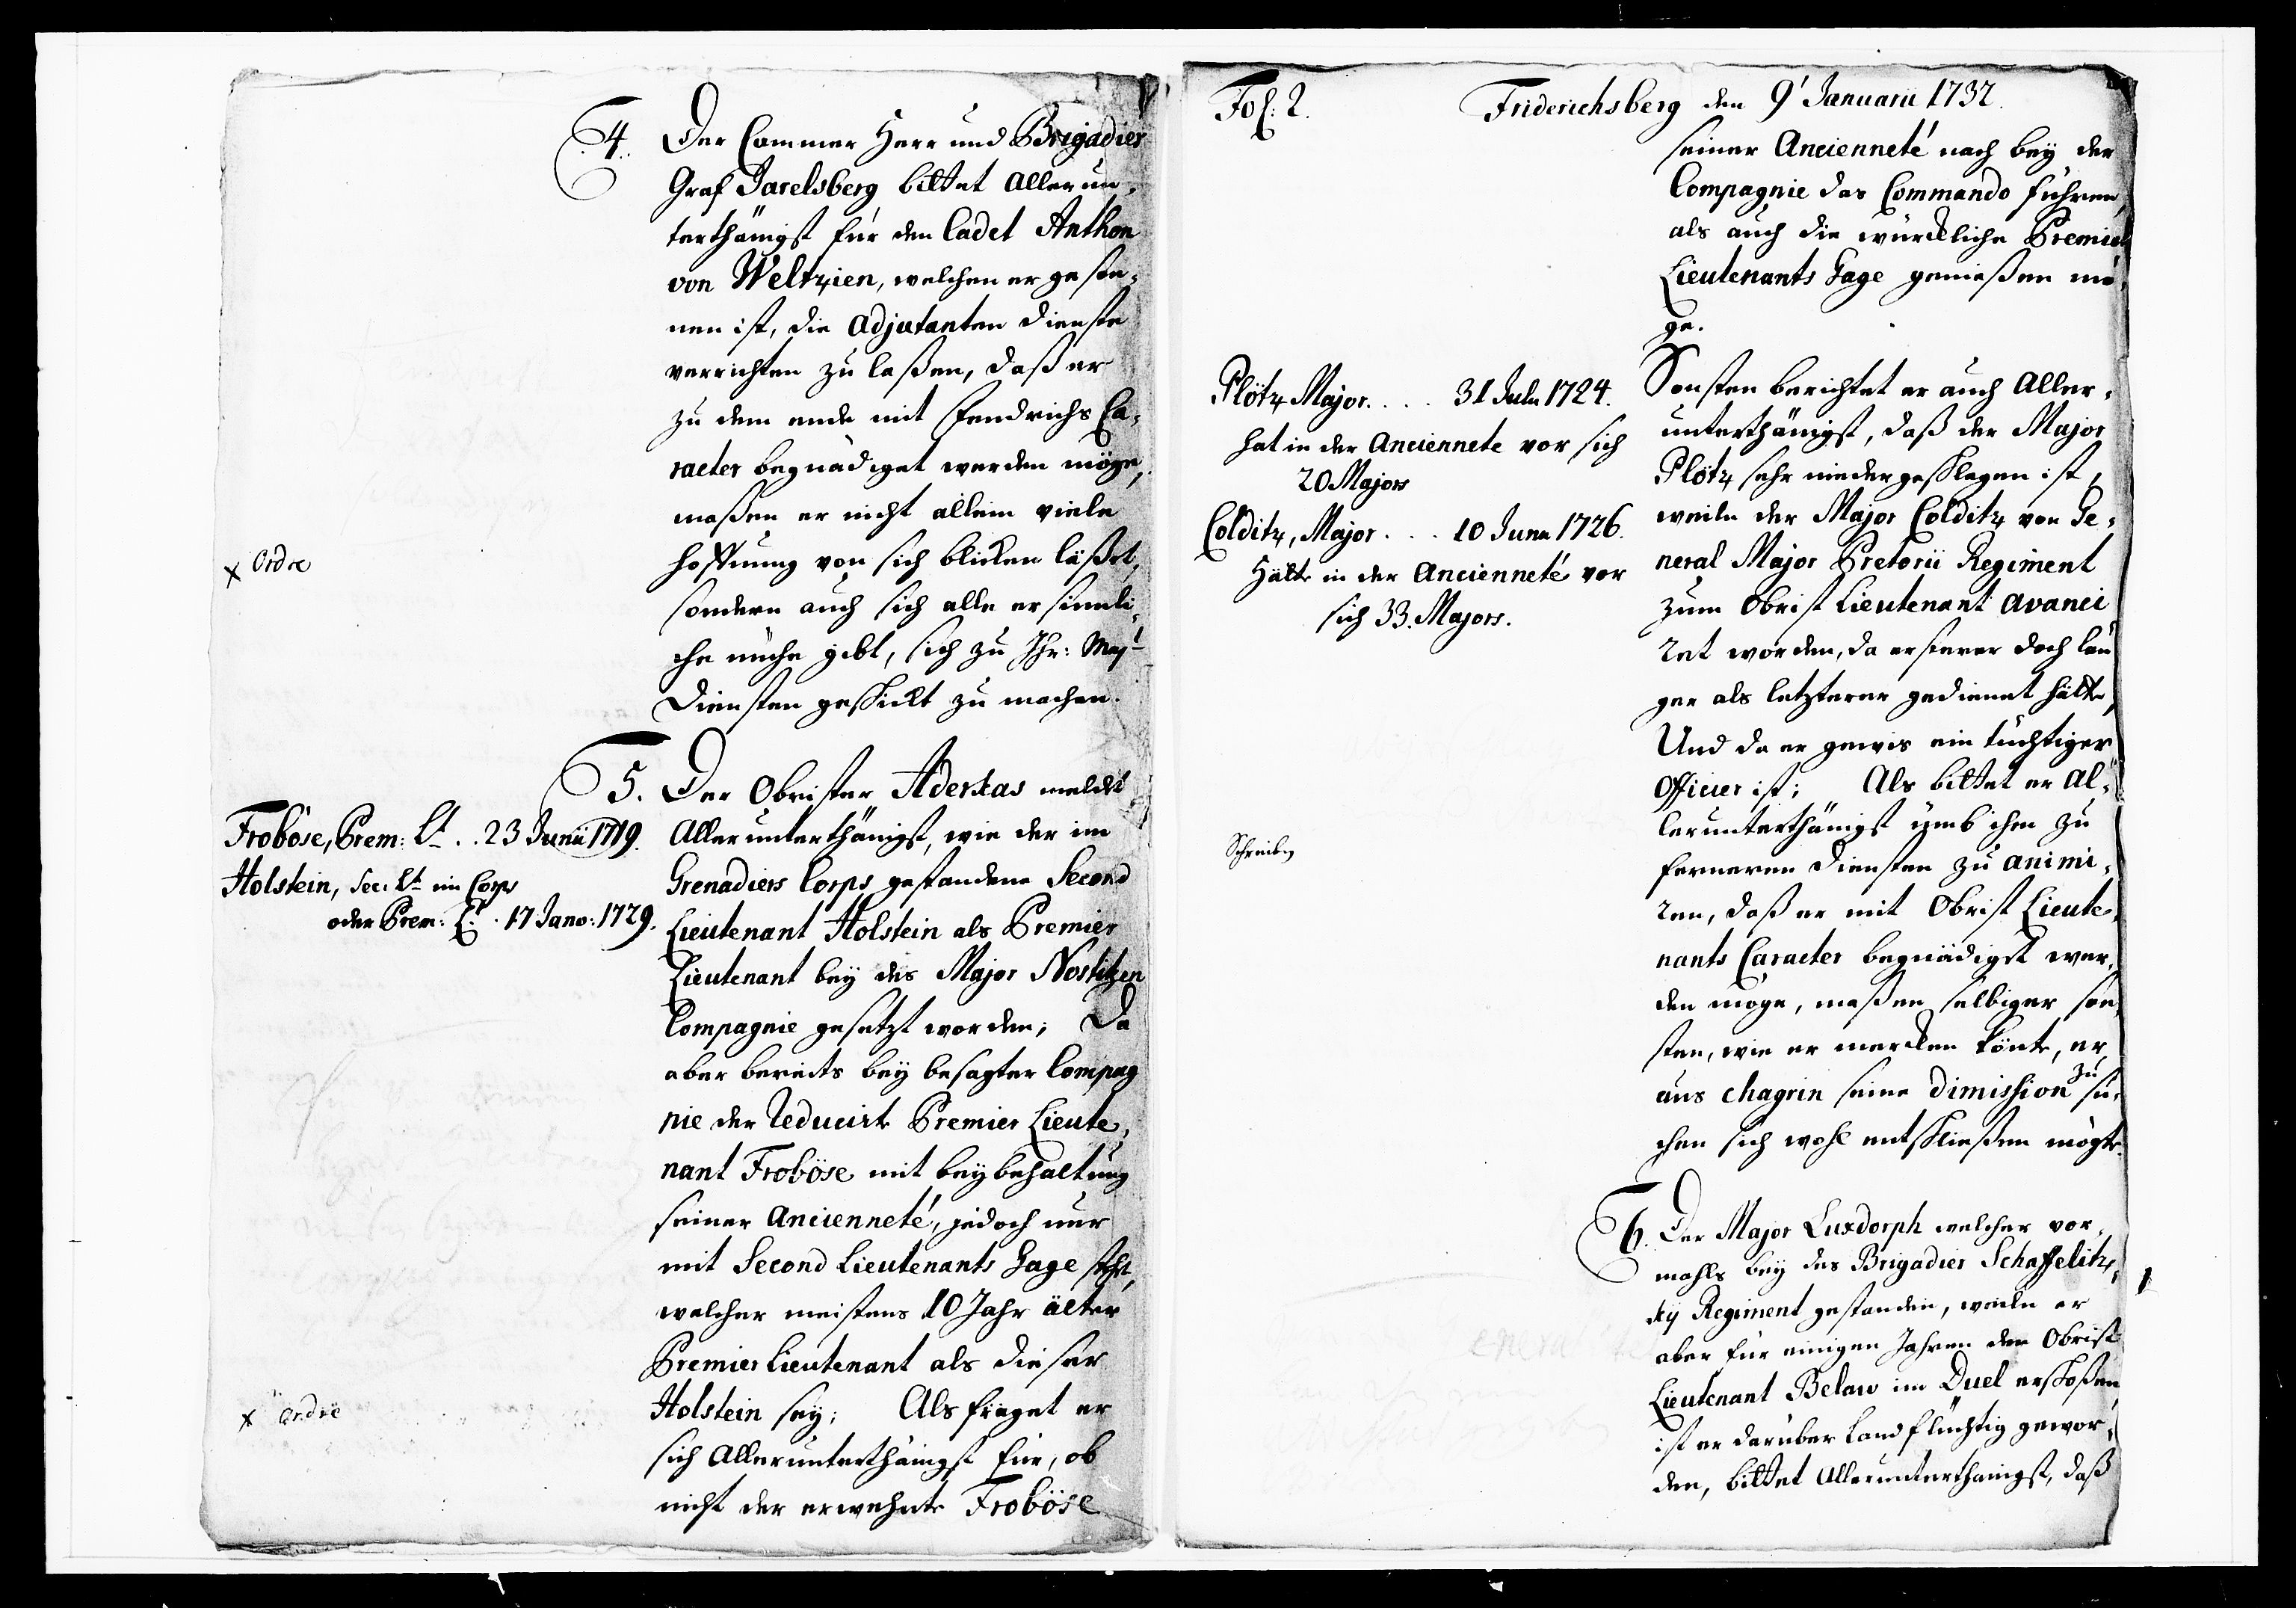 4. Der Cammer Herr und Brigadier
Graf Jarelsberg bittet Allerun-
terthänigst für den Cadet Anthon
von Weltzien, welchen er geson-
nen ist, die Adjutanten Dienste
verrichten zu laßen, daß er
zu dem ende mit Fendrichs Ca-
racter begnadiget werden möge,
maßen er nicht allein viele
x Ordre
hoffnung von sich blicken läßet,
sondern auch sich alle ersinnli-
che mühe gibt, sich zu Ihr: Mayt
Diensten geschickt zu machen.
5. Der Obrister Aderkas meldet
Allerunterthänigst, wie der im
Grenadiers Corps gestandene Second
Lieutenant Holstein als Premier
Lieutenant bey des Major Nostitzen
Compagnie gesetzt worden; Da
aber bereits bey besagter Compag
nie der Reducirte Premier Lieute-
nant Froböse mit beybehaltung
seiner Ancienneté, jedoch nur
mit Second Lieutenants Gage steht,
welcher meistens 10 Jahr älter
Premier Lieutenant als dieser
Holstein sey; Als fraget er
sich Allerunterthänigst für, ob
nicht der erwehnte Froböse
Froböse, Prem: Lt. . . 23 Junii 1719.
Holstein, Sec: Lt. im Corps
oder Prem: L. . 17 Janv: 1729.
x Ordre
Fol: 2. Friderichsberg den 9' Januarii 1732.
seiner Ancienneté nach bey der
Compagnie das Commando führen,
als auch die würckliche Premier
Lieutenants Gage genießen mö-
ge.
Plötz Major. . . . 31 July 1724.
hat in der Anciennete vor sich
20 Majors
Colditz, Major . . . 10 Juny 1726.
Hätte in der Ancienneté vor
sich 33. Majors.
Sonsten berichtet er auch Aller-
unterthänigst, daß der Major
Plötz sehr niedergeschlagen ist,
weiln der Major Colditz von Ge-
neral Major Pretorii Regiment
zum Obrist Lieutenant avanci
ret worden, da ersterer doch län
ger als letzterer gedienet hätte,
Und da er gewis ein tüchtiger
Officier ist; Als bittet er Al-
lerunterthänigst ümb ihm zu
Schreiben
ferneren Diensten zu animi-
ren, daß er mit Obrist Lieute-
nants Caracter begnädiget wer-
den möge, maßen selbiger son-
sten, wie er mercken könte, er
aus chagrin seine Dimission zu su-
chen sich wohl entschließen mögte.
6. Der Major Luxdorph welcher vor-
mahls bey des Brigadier Schaffelitz-
ky Regiment gestanden, weiln er
aber für einigen Jahren den Obrist
Lieutenant Below im Duel erschoßen
ist er darüber Landflüchtig gewor-
den, bittet Allerunterthänigst, daß